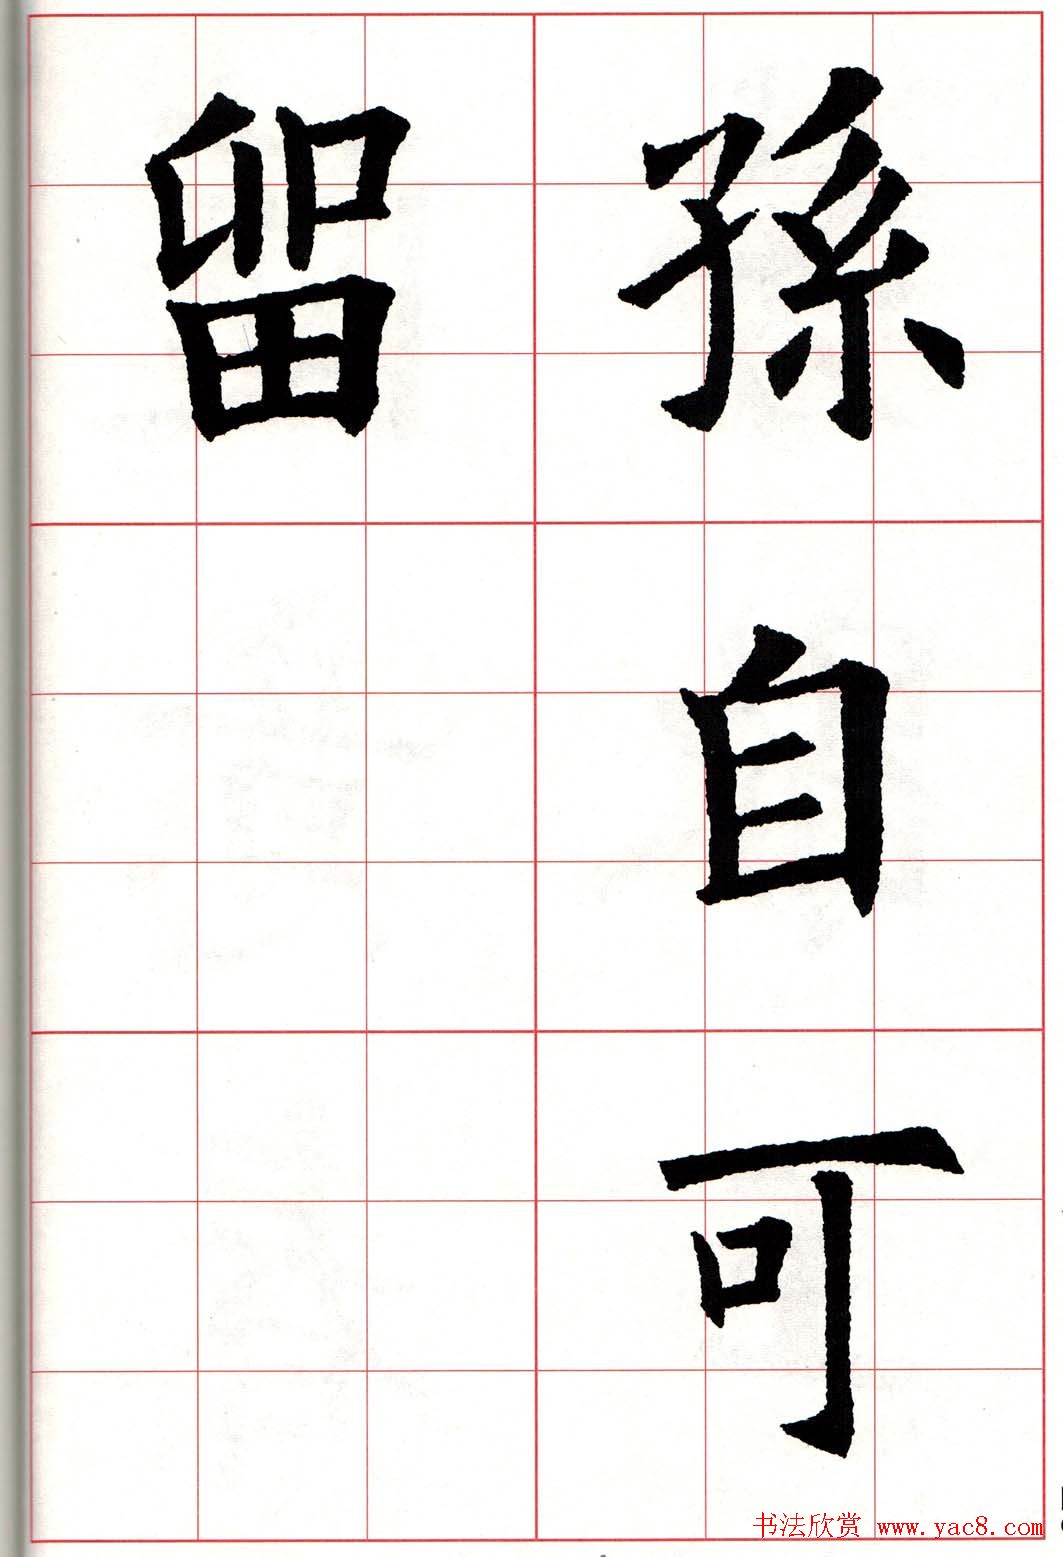 孫自可
留
书法欣赏 www.yac8.com